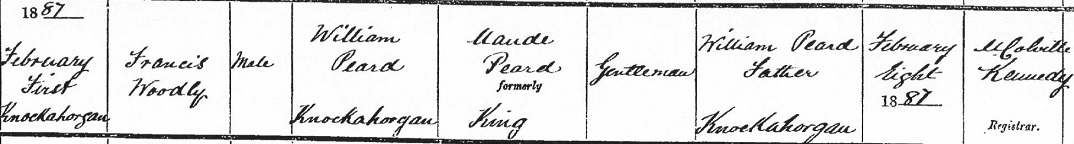 1887
February
First
Knockahorgan
Francis
Woodly
Male
William
Peard
Knockahorgan
Maude
Peard
formerly
King
Gentleman
William Peard
Father
Knockahorgan
February
Eight
1887
Kennedy
Registrar.